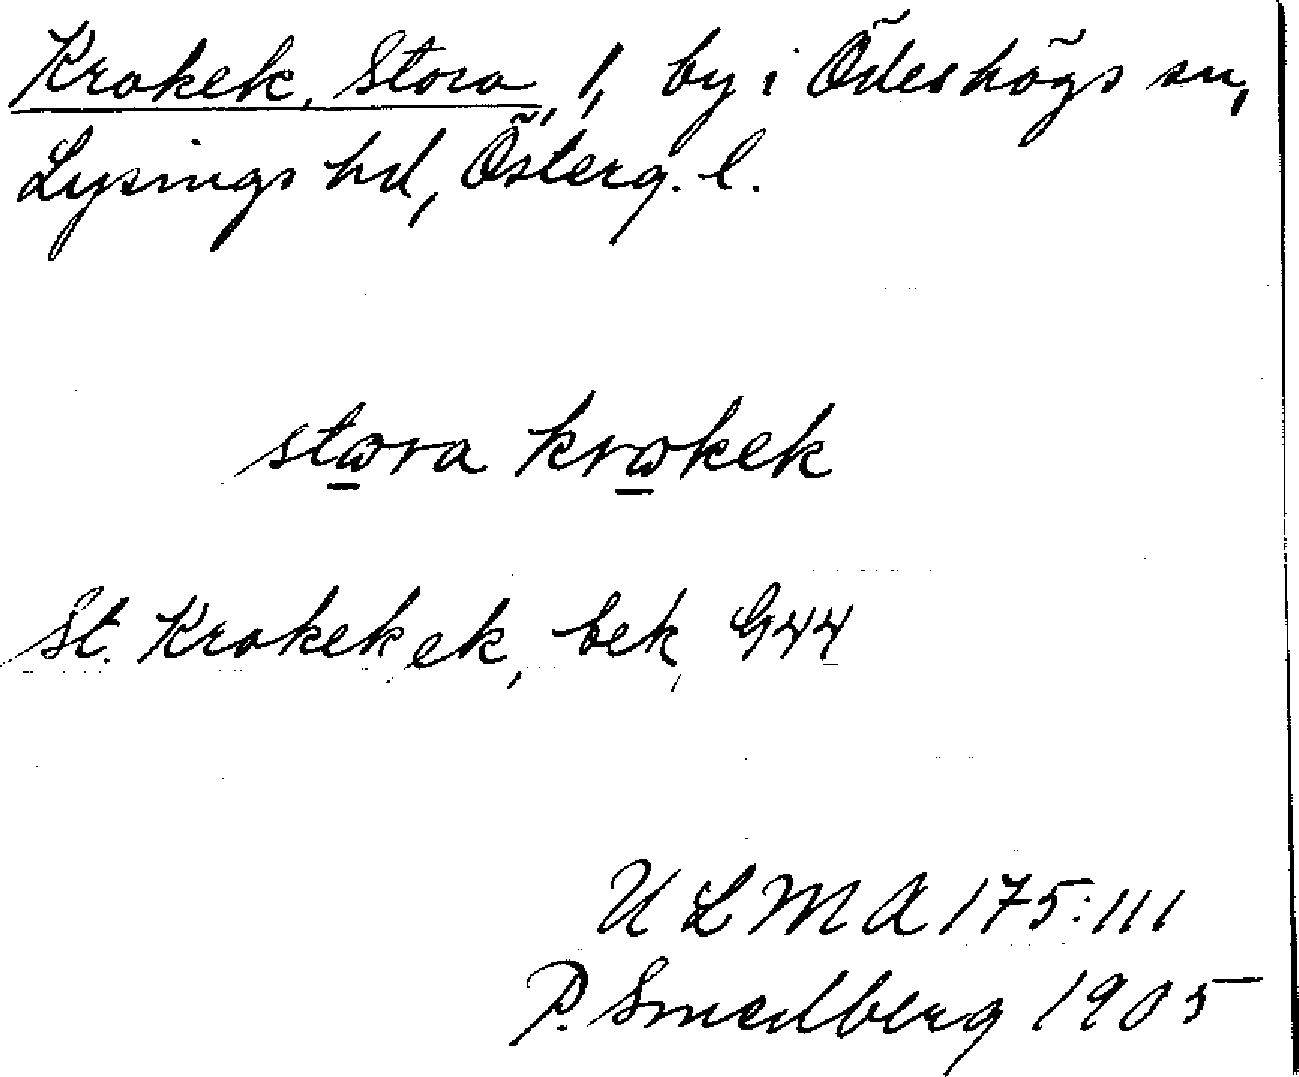 Krokek, Stora, 1, by i Ödeshögs sn,
Lysings hd, Österg. l.
stora krokek
St. Krokek ek, bek, G44
ULMA 175:111
P. Smedberg 1905